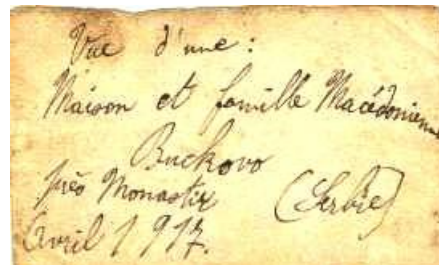 Vue d'une :
Maison et famille Macédonienne
Buckovo
près Monastir (Serbie)
Avril 1917.